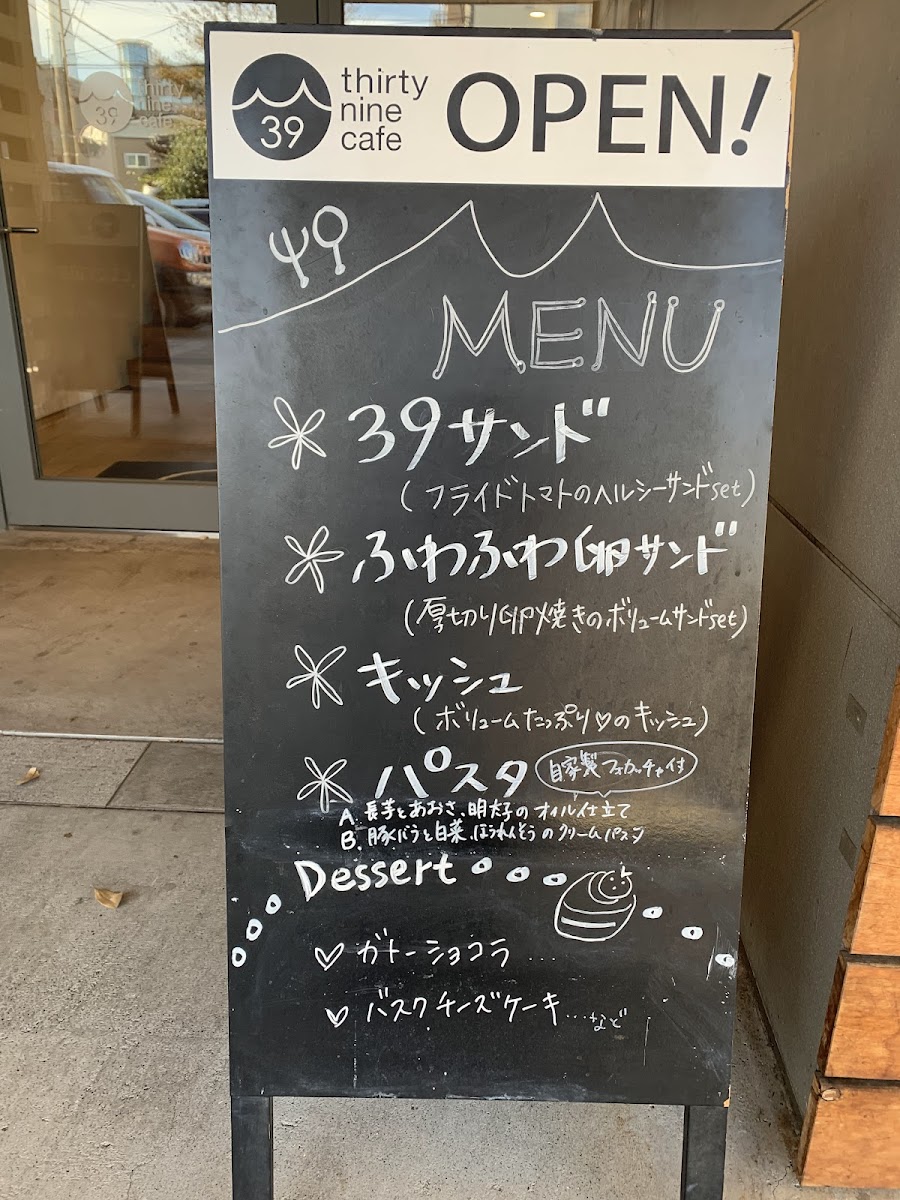 thirty
nine
cafe
39
OPEN!
MENU
39サンド
(フライドトマトのヘルシーサンドset)
ふわふわ卵サンド
(厚切り卵焼きのボリュームサンドset)
キッシュ
(ボリュームたっぷり♡のキッシュ)
パスタ 自家製フォカッチャ付
A. 長芋とあおさ、明太子のオイル仕立て
B. 豚バラと白菜、ほうれんそうのクリームパスタ
Dessert
♡ ガトーショコラ ...
♡ バスクチーズケーキ...など
thirty
nine
cafe
39